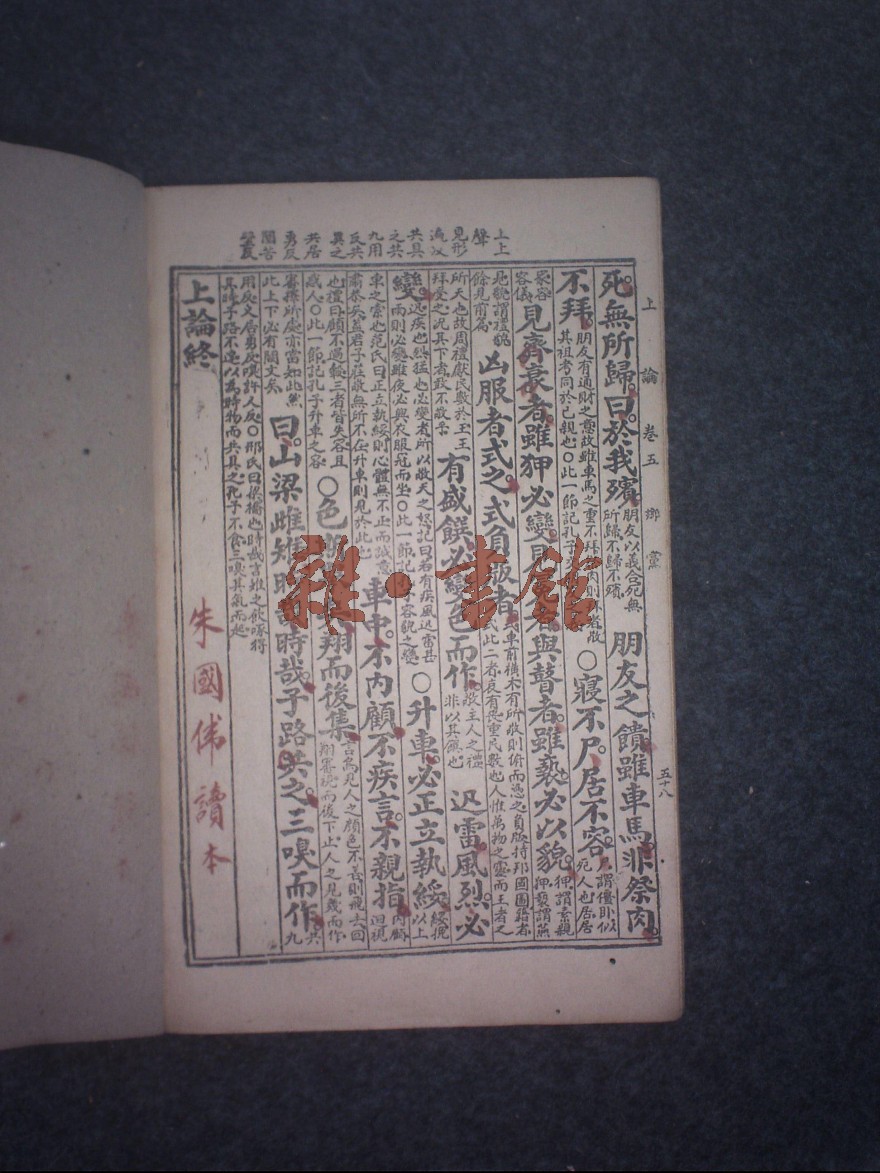 上論 卷五 鄉黨
五十八
死無所歸曰於我殯朋友以義合死無所歸不歸不殯 朋友之饋雖車馬非祭肉
不拜朋友有通財之義故雖車馬之重不拜 肉則 者敬其祖考同於己親也○此一節記孔子 ○寢不尸居不容尸謂偃臥似死人也居居
家容儀見齊衰者雖狎必變見 者與瞽者雖褻必以貌狎謂素親狎褻謂燕
見貌謂禮貌餘見前篇 凶服者式之式負版者式車前橫木有所敬則俯而憑之負版持邦國圖籍者式此二者哀有喪重民數也人惟萬物之靈而王者之
所天也故周禮獻民數於王王拜受之況其下者敢不敬乎 有盛饌必變色而作敬主人之禮非以其饌也 迅雷風烈必
變迅疾也烈猛也必變者所以敬天之怒記曰若有疾風迅雷甚雨則必變雖夜必興衣服冠而坐○此一節記 容貌之變 ○升車必正立執綏綏挽以上
車之索也范氏曰正立執綏則心體無不正而誠意肅恭矣蓋君子莊敬無所不在升車則見於此也 車中不內顧不疾言不親指內顧回視
也禮曰顧不過轂三者皆失容且惑人○此一節記孔子升車之容 ○色 翔而後集言鳥見人之顏色不善則飛去回翔審視而後下止人之見幾而作
審擇所處亦當如此然此上下必有闕文矣 曰山梁雌雉時哉時哉子路共之三嗅而作共九
用反又居勇反嗅許又反○邢氏曰梁橋也時哉言雉之飲啄得其時子路不達以為時物而共具之孔子不食三嗅其氣而起
上論終
上上
聲
見形
遍反
共具
之共
九用
反共
異之
共居
勇反
朱國偉讀本
雜·書館